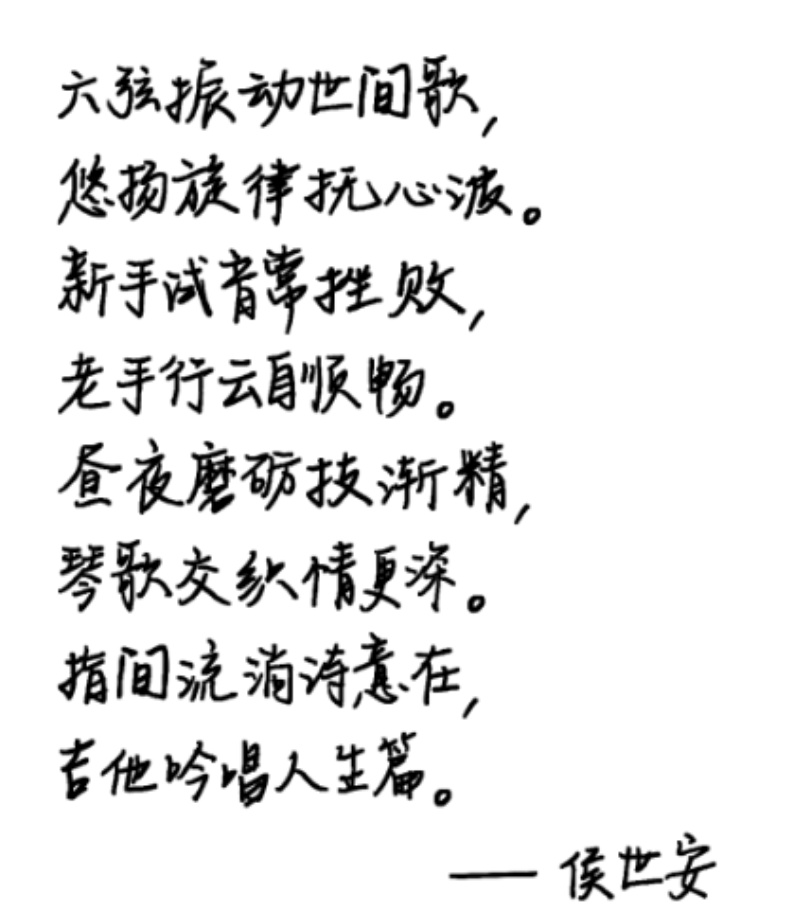 六弦振动世间歌,
悠扬旋律抚心波。
新手试音常挫败,
老手行云自顺畅。
昼夜磨砺技渐精,
琴歌交织情更深。
指间流淌诗意在,
吉他吟唱人生篇。
—— 侯世安